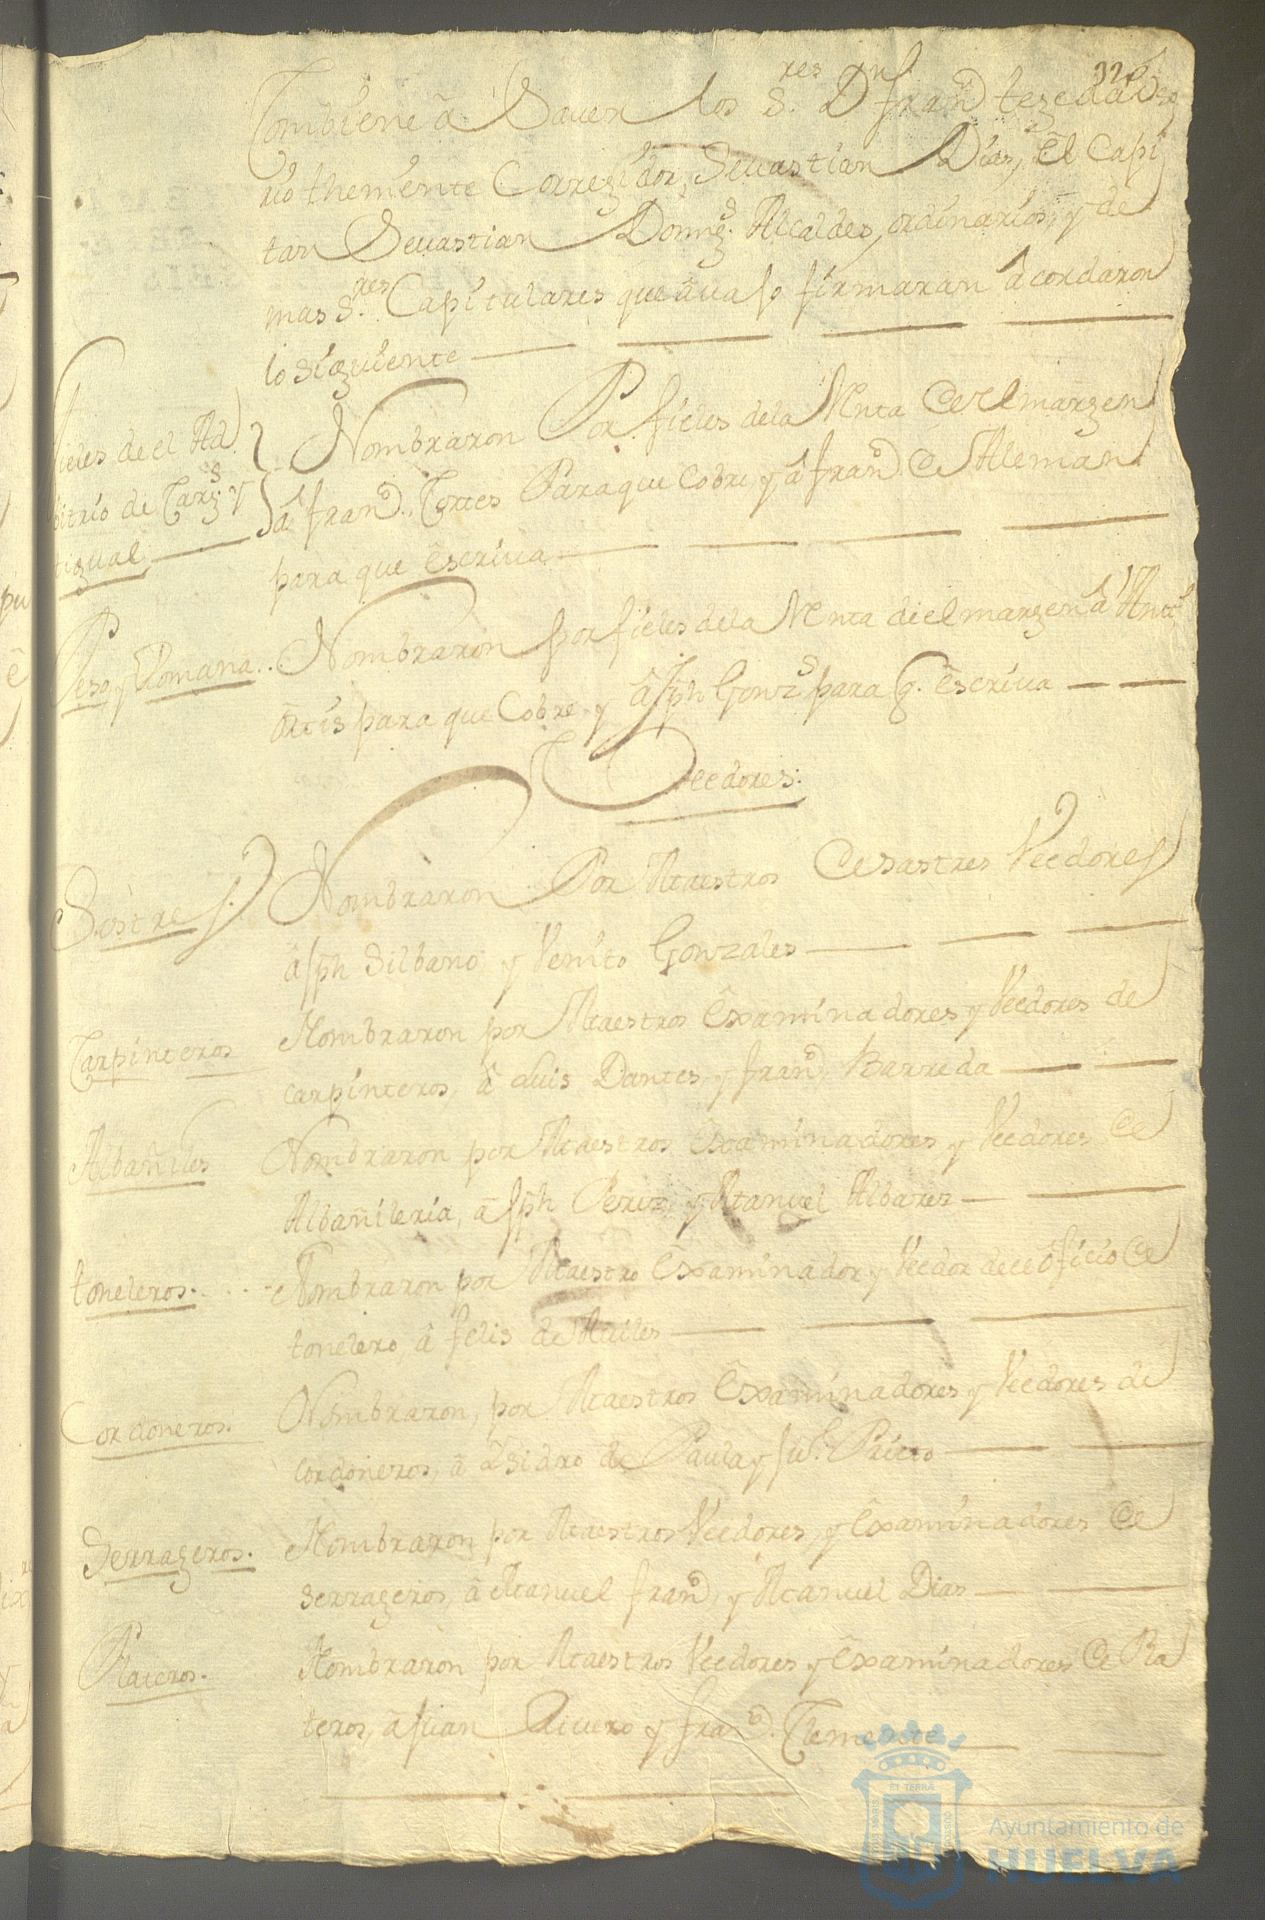 326
Combiene â Sauer los S.res D.n fran.co tezedâ Oso
rio theniente Corregidor, Seuastian Dias, êl Capi
tan Seuastian Doming.s Alcaldes ordinarios, y de
mas S.res Capitulares que âuajo firmaran âcordaron
lo siguiente
fieles de el Ad
bitrio de Carg.s y
tigual
Nombraron Por fieles dela Renta de el margen
â fran.co Torres Para que Cobre, y â fran.co de Aleman
para que êscriua
Peso, y Romana..
Nombraron por fieles dela Renta de el margen â Ant.o
Ortis para que Cobre, y â Jph Gonz.s para q. êscriua
Veedores:
Sastres.
Nombraron Por Maestros de sastres Veedores
â Jph Silbano y Venito Gonzales
Carpinteros
Nombraron por Maestros êxaminadores y Veedores de
carpinteros, â Luis Dantes, y fran.co Barreda
Albañiles
Nombraron por Maestros êxaminadores y Veedores de
Albañileria, â Jph Perez, y Manuel Albarez
toneleros.
Nombraron por Maestro êxaminador y Veedor de el ôficio de
tonelero, â felis de Auiles
Cordoneros.
Nombraron, por Maestros êxaminadores y Veedores de
cordoneros, â Ysidro de Paula y Ju.o Prieto
Serrageros.
Nombraron por Maestros Veedores, y êxaminadores de
serrageros, â Manuel fran.co y Manuel Dias
Plateros.
Nombraron por Maestros Veedores y êxaminadores de Pla
teros, â Juan Riuero y fran.co Clemente
Ayuntamiento de
HUELVA